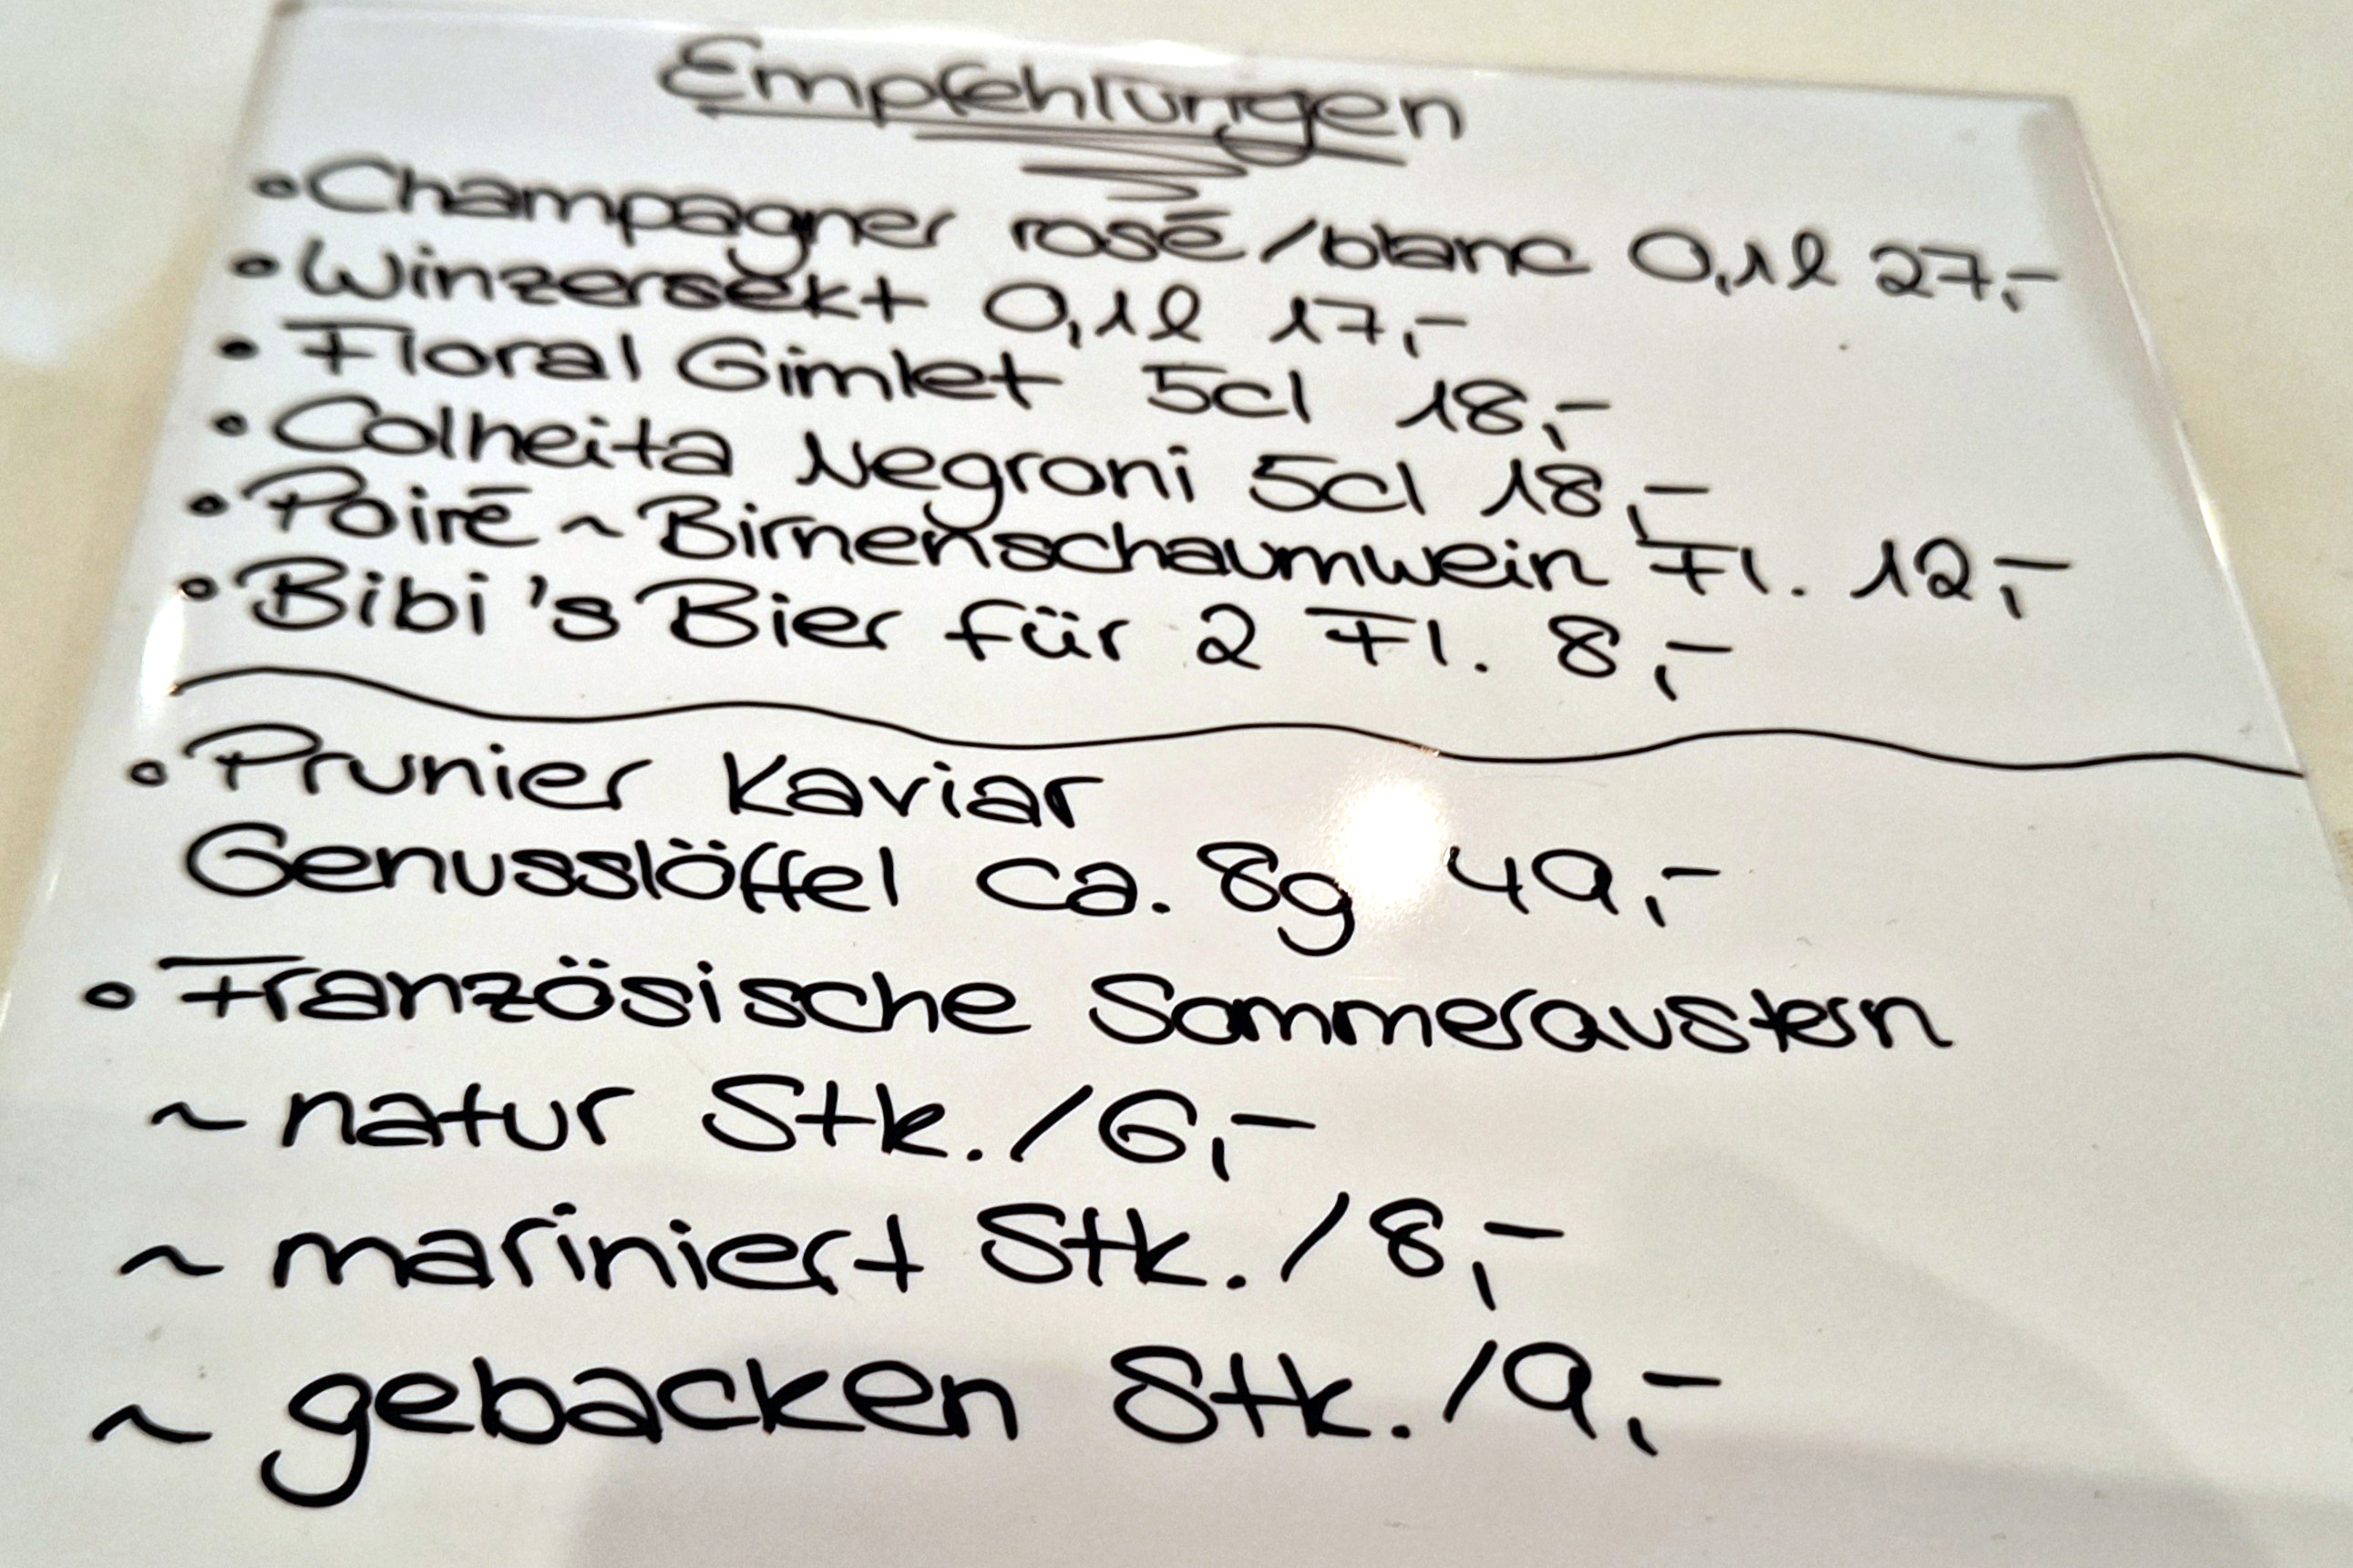 Empfehlungen
• Champagner rosé/blanc 0,1l 27,-
• Winzersekt 0,1l 17,-
• Floral Gimlet 5cl 18,-
• Colheita Negroni 5cl 18,-
• Poiré ~ Birnenschaumwein Fl. 12,-
• Bibi's Bier für 2 Fl. 8,-
• Prunier Kaviar
Genusslöffel ca. 8g 49,-
• Französische Sommeraustern
~ natur Stk. /6,-
~ mariniert Stk. /8,-
~ gebacken Stk. /9,-